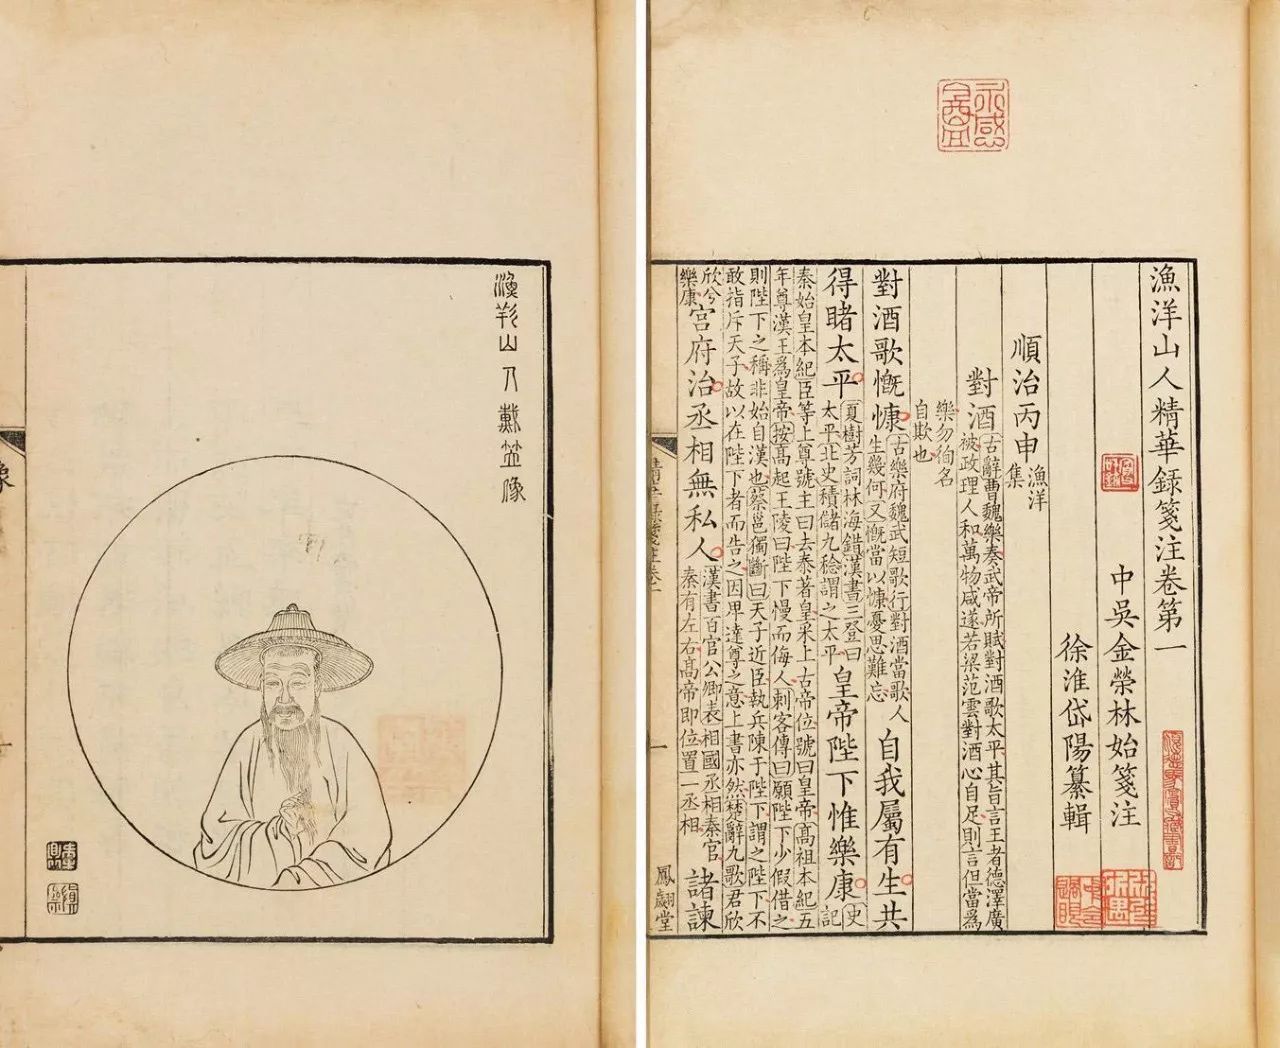 漁洋山人戴笠像
漁洋山人精華錄箋注卷第一
中吳金榮林始箋注
徐淮岱陽纂輯
順治丙申漁洋集
對酒古辭曹魏樂奏武帝所賦對酒歌太平其旨言王者德澤廣
被政理人和萬物咸遂若梁范雲對酒心自足則言但當爲
樂勿徇名
自欺也
對酒歌慨慷古樂府魏武短歌行對酒當歌人生幾何又慨當以慷憂思難忘自我屬有生共
得睹太平夏樹芳詞林海錯漢書三登曰太平北史積儲九稔謂之太平皇帝陛下惟樂康史記
秦始皇本紀臣等上尊號主曰去泰著皇采上古帝位號曰皇帝高祖本紀五
年尊漢王爲皇帝按高起王陵曰陛下慢而侮人刺客傳曰願陛下少假借之
則陛下之稱非始自漢也蔡邕獨斷曰天子近臣執兵陳于陛下謂之陛下不
敢指斥天子故以在陛下者而告之因卑達尊之意上書亦然楚辭九歌君欣
欣兮樂康宮府治丞相無私人漢書百官公卿表相國丞相秦官秦有左右高帝即位置一丞相諸諫
鳳翽堂